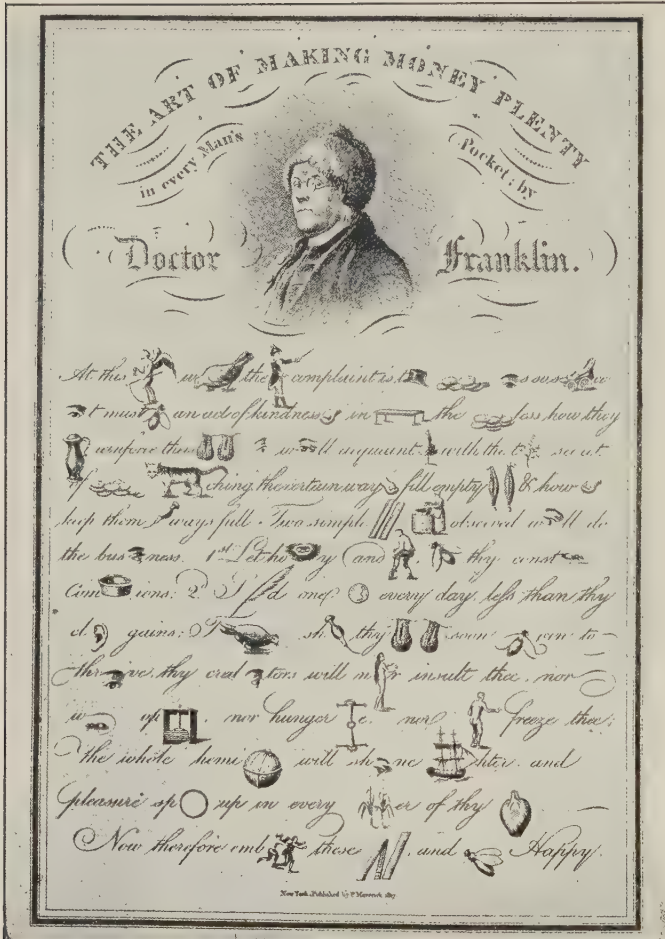 THE ART OF MAKING MONEY PLENTY
in every Man's Pocket; by
Doctor Franklin.
At this the complaint is
t must an act of kindness in the less, how they
reinforce their w ll acquaint with the t secret
of ching, the certain way fill empty & how
keep them ways full. Two simple observed w ll do
the bus ness. 1st Let ho y and thy const
Com ions: 2d d one every day less than thy
cl gains: T sh thy soon in to
thr ive, thy cred tors will n r insult thee, nor
w op nor hunger e, nor freeze thee,
the whole hemi will sh ne hter, and
pleasure sp up in every er of thy
Now therefore emb these , and Happy.
New York. Published by P. Maverick